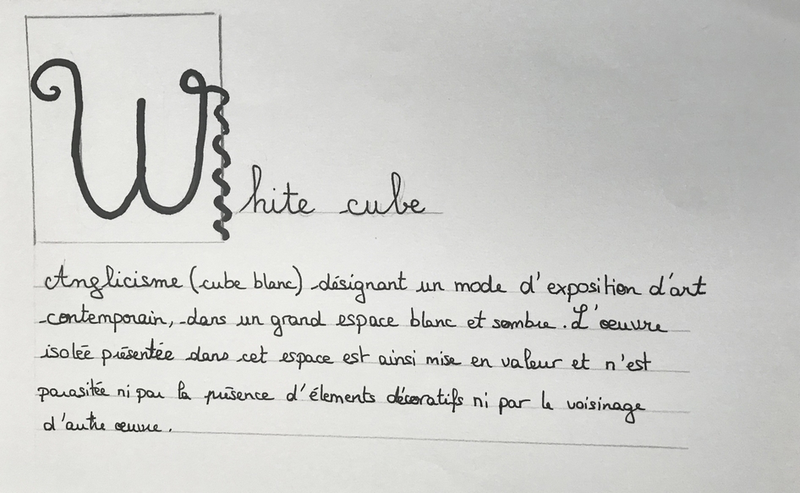 White cube
Anglicisme (cube blanc) désignant un mode d'exposition d'art
contemporain, dans un grand espace blanc et sombre. L'œuvre
isolée présentée dans cet espace est ainsi mise en valeur et n'est
parasitée ni par la présence d'élements décoratifs ni par le voisinage
d'autre œuvre.